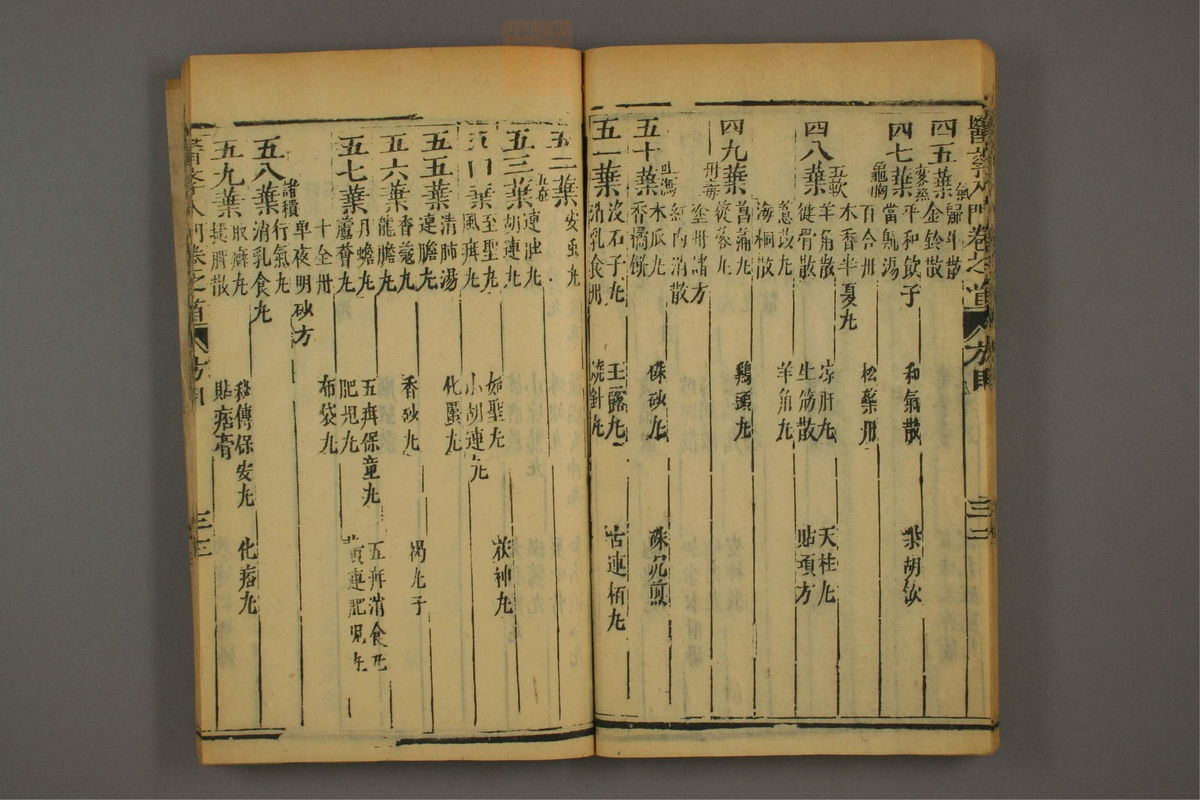 四五葉 金鈴散
四七葉 龜胸 平和飲子 和氣散 柴胡飲
當歸湯
百合丹 松藥丹
木香半夏丸
四八葉 五軟 羊角散 凉肝丸 天柱丸
健骨散 生筋散 貼項方
羊角丸
海桐散
四九葉 丹毒 菖蒲丸 鷄頭丸
塗丹諸方
紅內消散
五十葉 吐瀉 木瓜丸 硃砂丸 硃沉煎
香橘餅
沒石子丸 玉露丸 古連栢丸
五一葉 消乳食丹 燒針丸
五二葉 安虫丸
五三葉 五疳 連肚丸
胡連丸 如聖丸
五四葉 至聖丸 小胡連丸
風疳丸 化䘌丸
五五葉 清肺湯
連膽丸
五六葉 香蔻丸 香砂丸 褐丸子
龍膽丸
五七葉 丹蟾丸 五疳保童丸 五疳消食丸
蘆薈丸 肥兒丸 黃連肥兒丸
十全丹 布袋丸
單夜明砂方
五八葉 諸積 行氣丸
消乳食丸
五九葉 取癖丸 秘傳保安丸 化痞丸
貼痞膏